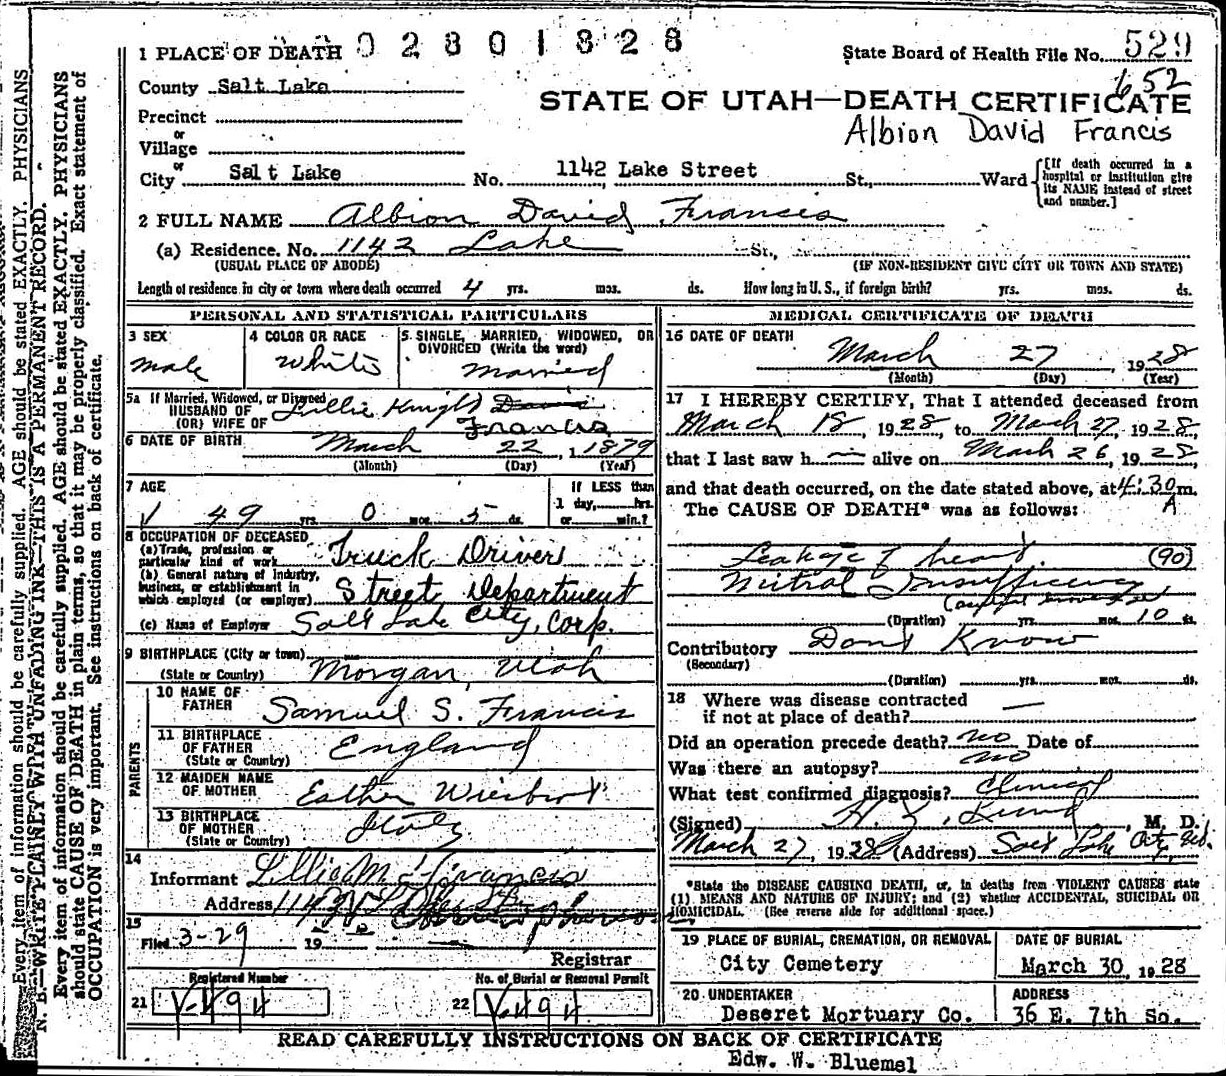 1 PLACE OF DEATH 02801828
State Board of Health File No. 529
652
County Salt Lake
STATE OF UTAH—DEATH CERTIFICATE
Precinct
Albion David Francis
or
Village
or
City Salt Lake No. 1142 Lake Street St., Ward
[If death occurred in a hospital or institution give its NAME instead of street and number.]
2 FULL NAME Albion David Francis
(a) Residence. No. 1142 Lake St.,
(USUAL PLACE OF ABODE) (IF NON-RESIDENT GIVE CITY OR TOWN AND STATE)
Length of residence in city or town where death occurred 4 yrs. mos. ds. How long in U. S., if foreign birth? yrs. mos. ds.
PERSONAL AND STATISTICAL PARTICULARS
3 SEX 4 COLOR OR RACE 5 SINGLE, MARRIED, WIDOWED, OR
DIVORCED (Write the word)
male White Married
5a If Married, Widowed, or Divorced
HUSBAND OF Lillie Knight Davis
(OR) WIFE OF Francis
6 DATE OF BIRTH March 22, 1879
(Month) (Day) (Year)
7 AGE If LESS than
1 day, hrs.
49 yrs. 0 mos. 5 ds. or min.?
8 OCCUPATION OF DECEASED
(a) Trade, profession or
particular kind of work Truck Driver
(b) General nature of industry,
business, or establishment in
which employed (or employer) Street Department
(c) Name of Employer Salt Lake City, Corp.
9 BIRTHPLACE (City or town)
(State or Country) Morgan, Utah
PARENTS
10 NAME OF
FATHER Samuel S. Francis
11 BIRTHPLACE
OF FATHER England
(State or Country)
12 MAIDEN NAME
OF MOTHER Esther
13 BIRTHPLACE
OF MOTHER Italy
(State or Country)
14
Informant Lillie M Francis
Address 1142
15
Filed 3-29 19
Registrar
Registered Number No. of Burial or Removal Permit
21 V-494 22 V-494
MEDICAL CERTIFICATE OF DEATH
16 DATE OF DEATH
March 27 1928
(Month) (Day) (Year)
17 I HEREBY CERTIFY, That I attended deceased from
March 18, 1928, to March 27, 1928,
that I last saw h alive on March 26, 1928,
and that death occurred, on the date stated above, at 4:30 m.
The CAUSE OF DEATH* was as follows: A
Leakage of heart (90)
Mitral Insufficiency
(Duration) yrs. mos. 10 ds.
Contributory Dont Know
(Secondary)
(Duration) yrs. mos. ds.
18 Where was disease contracted
if not at place of death? —
Did an operation precede death? no Date of
Was there an autopsy? no
What test confirmed diagnosis? Clinical
(Signed) , M. D.
March 27, 1928 (Address) Salt Lake City,
*State the DISEASE CAUSING DEATH, or, in deaths from VIOLENT CAUSES state
(1) MEANS AND NATURE OF INJURY; and (2) whether ACCIDENTAL, SUICIDAL OR
HOMICIDAL. (See reverse side for additional space.)
19 PLACE OF BURIAL, CREMATION, OR REMOVAL DATE OF BURIAL
City Cemetery March 30, 1928
20 UNDERTAKER ADDRESS
Deseret Mortuary Co. 36 E. 7th So.
READ CAREFULLY INSTRUCTIONS ON BACK OF CERTIFICATE
Edw. W. Bluemel
Every item of information should be carefully supplied. AGE should be stated EXACTLY. PHYSICIANS
N. B.—WRITE PLAINLY WITH UNFADING INK—THIS IS A PERMANENT RECORD.
Every item of information should be carefully supplied. AGE should be stated EXACTLY. PHYSICIANS
should state CAUSE OF DEATH in plain terms, so that it may be properly classified. Exact statement of
OCCUPATION is very important. See instructions on back of certificate.